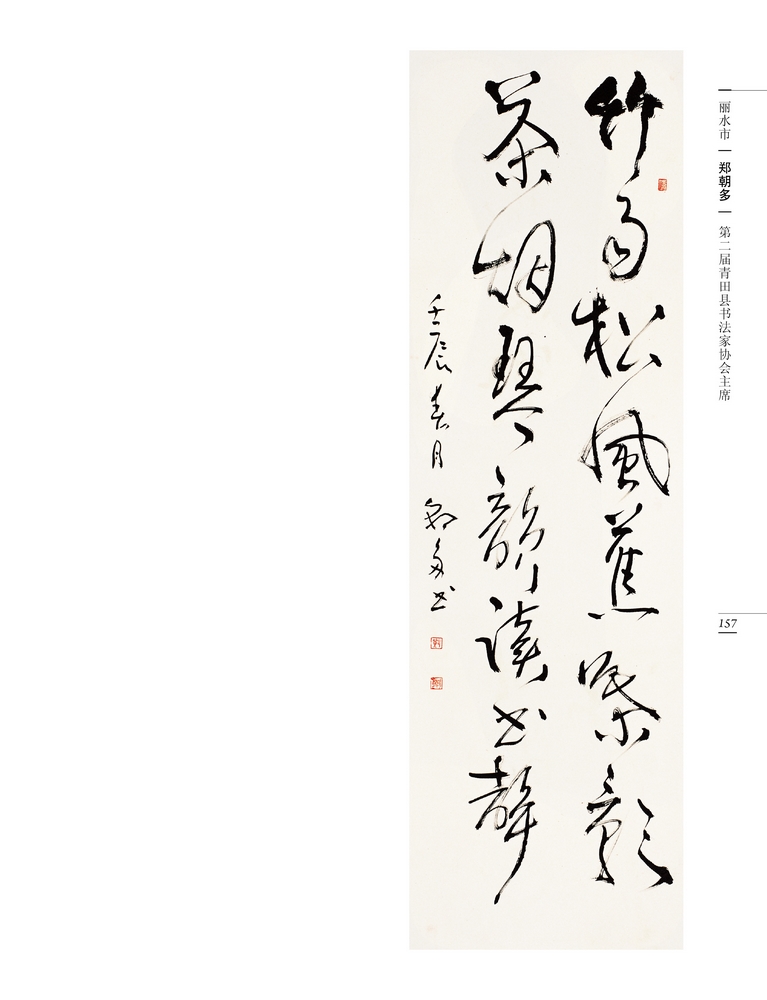 竹雨松風蕉葉影
茶烟琴韻读书聲
壬辰春月 郑多书
丽水市 | 郑朝多 | 第二届青田县书法家协会主席
157